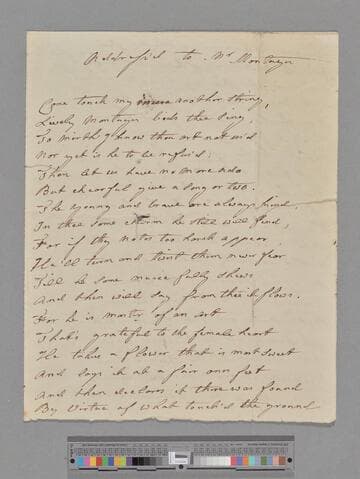 Address'd to Mr Montagu
Come touch my muse another string,
Lively Montagu bids thee sing,
To mirth I know thou art not us'd
Nor yet is he to be refus'd;
Then let us have no more ado
But chearful give a song or two.
The young and brave are always kind,
In thee some charm he still will find,
For if thy notes too harsh appear
He'll turn and twist them never fear
Till he some muse fully shews
And then will say from thee it flows.
For he is master of an art
That's grateful to the female heart
He takes a flower that is most sweet
And lays it at a fair ones feet
And then declares it there was found
By Virtue of what touch'd the ground